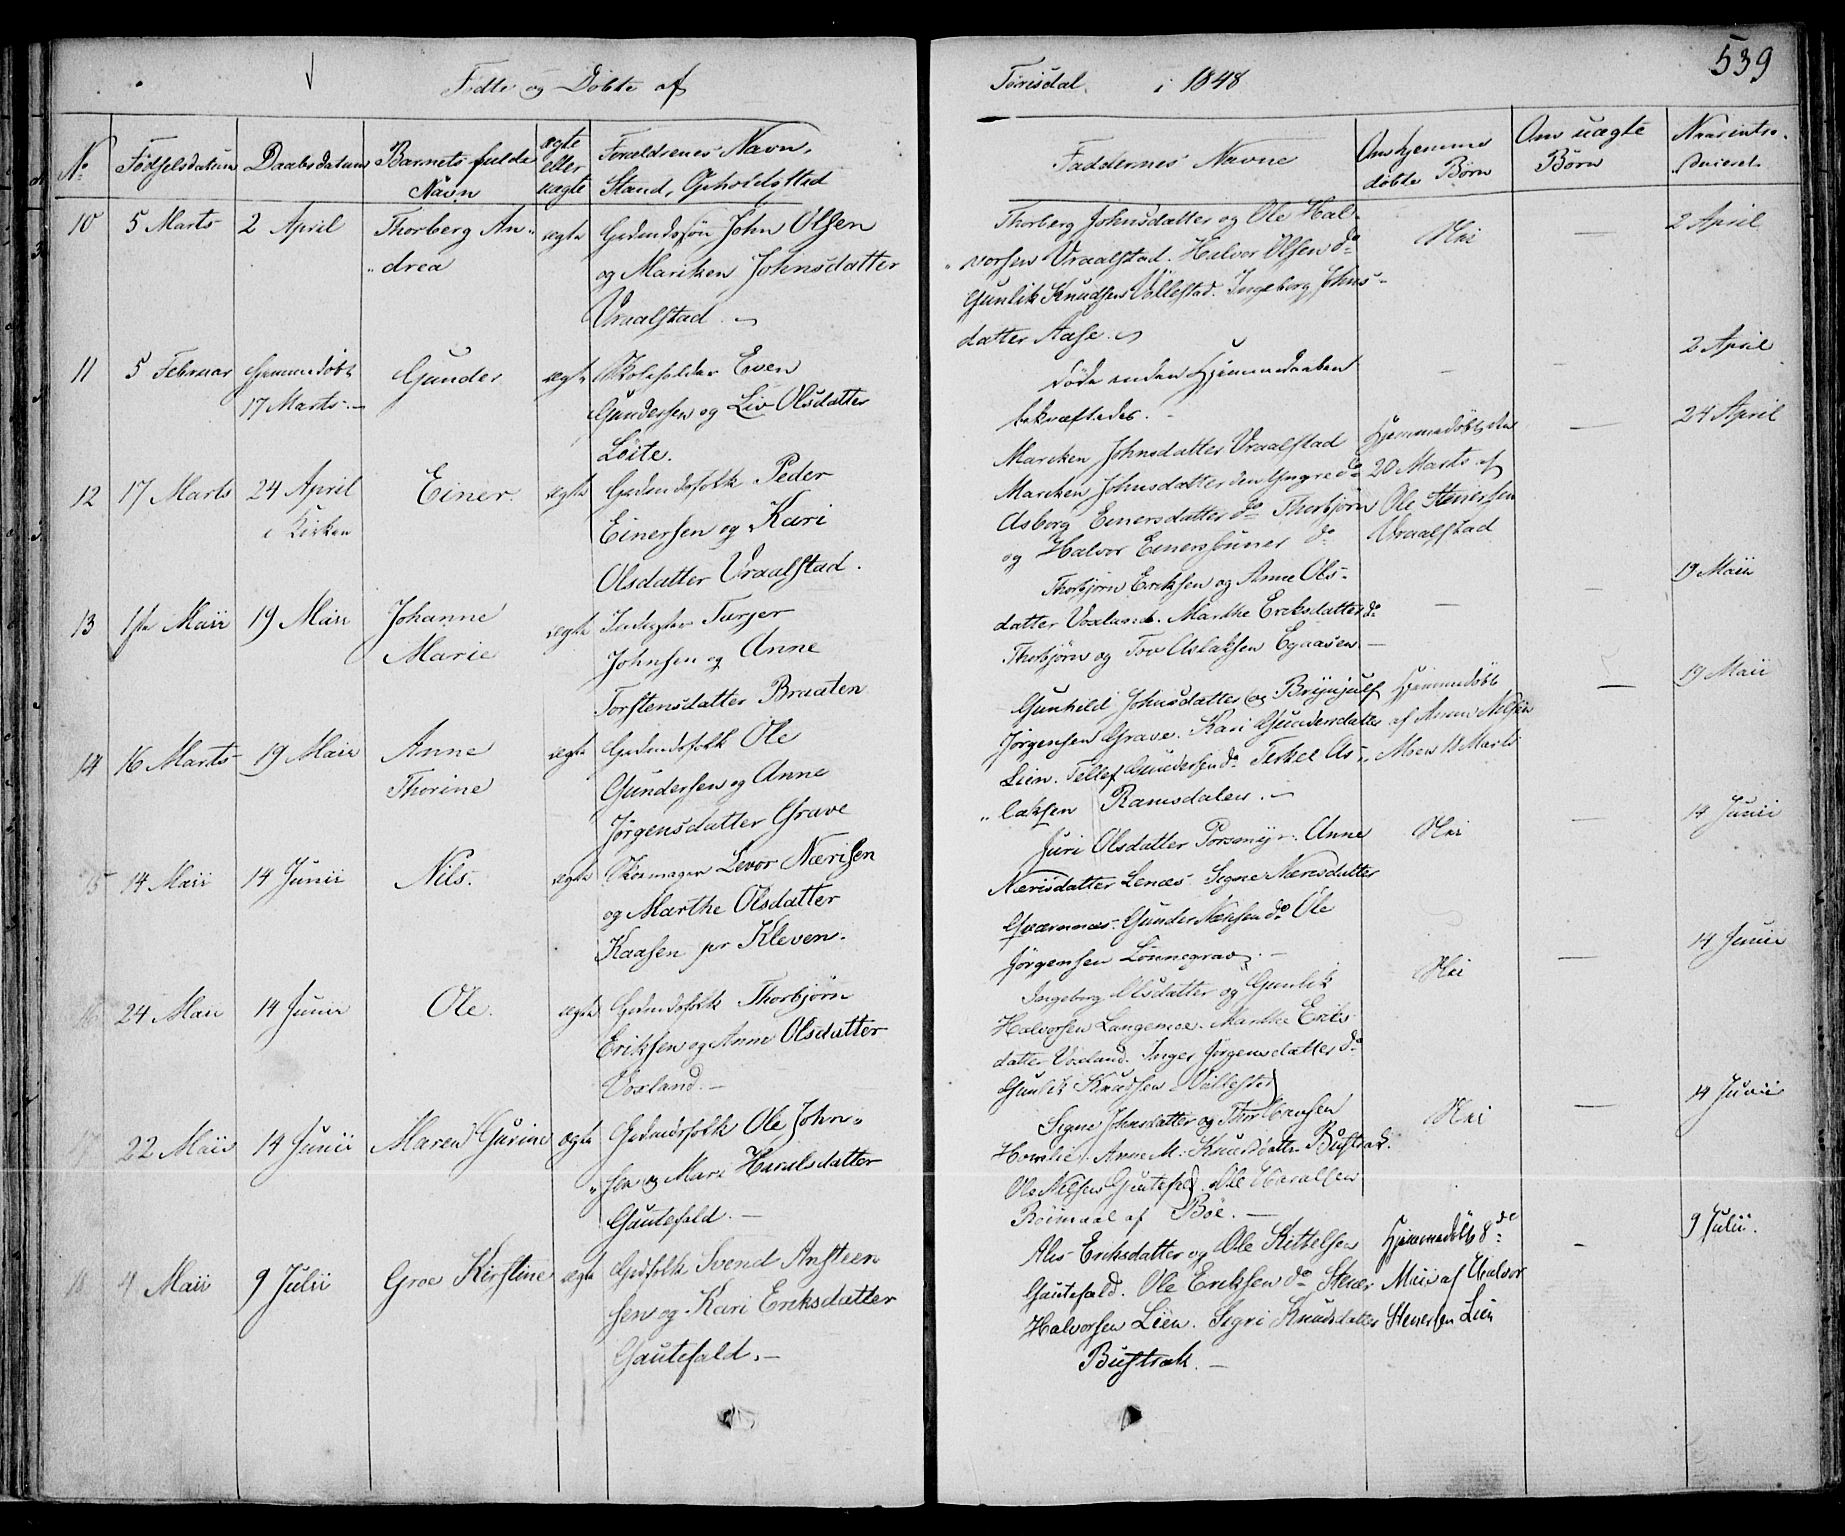 539
Fødte og Døbte af Tørrisdal i 1848
No
Fødselsdatum
Daabsdatum
Barnets fulde
Navn
ægte
eller
uægte
Forældrenes Navn,
Stand, Opholdsstad
Faddernes Navne
Om hjemme
døbte Børn
Om uægte
Børn
Naar intro-
duceret
10 5 Marts 2 April Thorberg An-
drea
ægte
Gaardmand John Olsen
og Mariken Johnsdatter
Vraalstad
Thorberg Johnsdatter og Ole Hal-
vorsen Vraalstad. Halvor Olsen do
Gunlik Knudsen Vallestad. Ingeborg Johns-
datter Aase.
Nei
—
2 April
11 5 Februar Hjemmedøbt
17 Marts
Gunder
ægte
Skoleholder Even
Gundersen og Liv Olsdatter
Löite.
døde inden Hjemmedaaben
bekræftedes.
2 April
12 17 Marts 24 April
i Kirken
Einer
ægte
Gaardmdsfolk Peder
Einersen og Kari
Olsdatter Vraalstad.
Mareken Johnsdatter Vraalstad
Mareken Johnsdatter den Yngre do
Asborg Einersdatter do Thorbjørn
og Halvor Einerssönner do
Hjemmedøbt den
20 Marts af
Ole Stenersen
Vraalstad
—
24 April
13 1ste Maii 19 Maii Johanne
Marie
ægte
Inderster Tarjer
Johnsen og Anne
Torstensdatter Braaten
Thorbjörn Eriksen og Anne Ols-
datter Voxland. Marthe Eriksdatter do
Thorbjørn og Tov Aslaksen Egaasen
—
19 Maii
14 16 Marts 19 Maii Anne
Thorine
ægte
Gaardmdsfolk Ole
Gundersen og Anne
Jørgensdatter Grave
Gunhild Johnsdatter og Brynjulf
Jørgensen Grave. Kari Gundersdatter
Lien. Tellef Gundersen do Terkel As-
laksen Ramsdalen.
Hjemmedøbt
af Anne Nilsen
Moen 18 Marts
—
19 Maii
15 14 Maii 14 Junii Nils.
ægte
Skomager Levor Nærisen
og Marthe Olsdatter
Kaasen pr Kleven.
Juri Olsdatter Porsmyr. Anne
Nærisdatter Lenæs. Signe Nærisdatter
Quærnnæs. Gunder Næsen do Ole
Jørgensen Lönnegrav.
Nei
—
14 Junii
16 24 Maii 14 Junii Ole.
ægte
Gaardmdsfolk Thorbjörn
Eriksen og Anne Olsdatter
Voxland.
Ingeborg Olsdatter og Gunlik
Halvorsen Langemoe. Marthe Eriks-
datter Voxland. Inger Jørgensdatter do
Gunlik Knudsen Vallestad
Nei
—
14 Junii
17 22 Maii 14 Junii Maren Gurine
ægte
Gaardmdsfolk Ole John-
sen og Mari Haralsdatter
Gautefald.
Signe Johnsdatter og Thor Hansen
Homlie. Anne M. Knudsdatter Bustrak.
Ole Nilsen Gautefald. Ole Haralsen
af Böe.
Nei
—
14 Junii
18 4 Maii 9 Julii Groe Kirstine
ægte
Gmdfolk Svend Ansteen-
sen og Kari Eriksdatter
Gautefald.
Eriksdatter og Ole Kittelsen
Gautefald. Ole Eriksen do Stener
Halvorsen Lien. Sigri Knudsdatter
Bustrak.
Hjemmedøbt 8de
Maii af Halvor
Stenersen Lien
—
9 Julii.